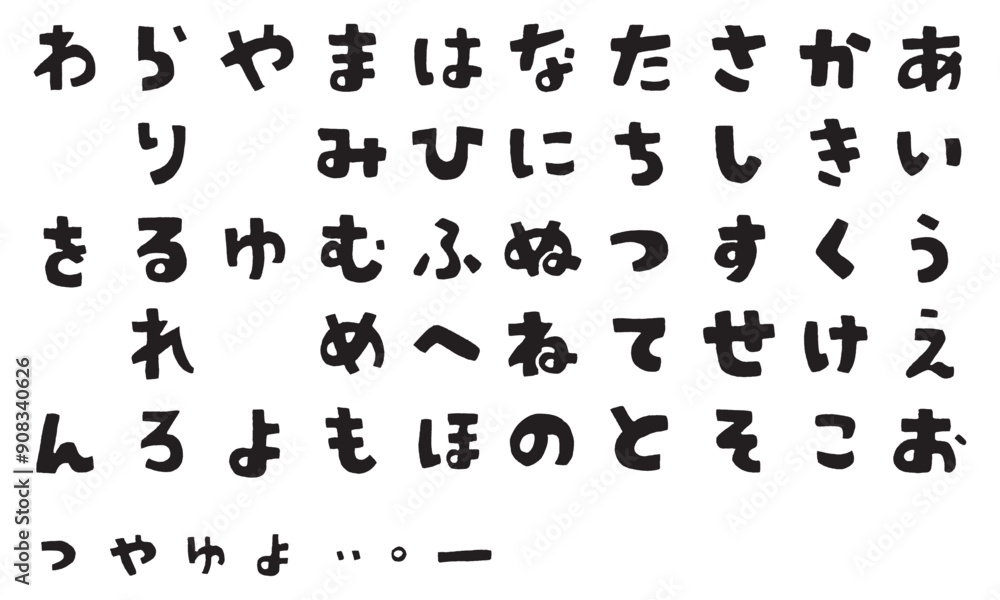 あいうえお
かきくけこ
さしすせそ
たちつてと
なにぬねの
はひふへほ
まみむめも
やゆよ
らりるれろ
わをん
っゃゅょ゛゜ー
Adobe Stock | #908340626